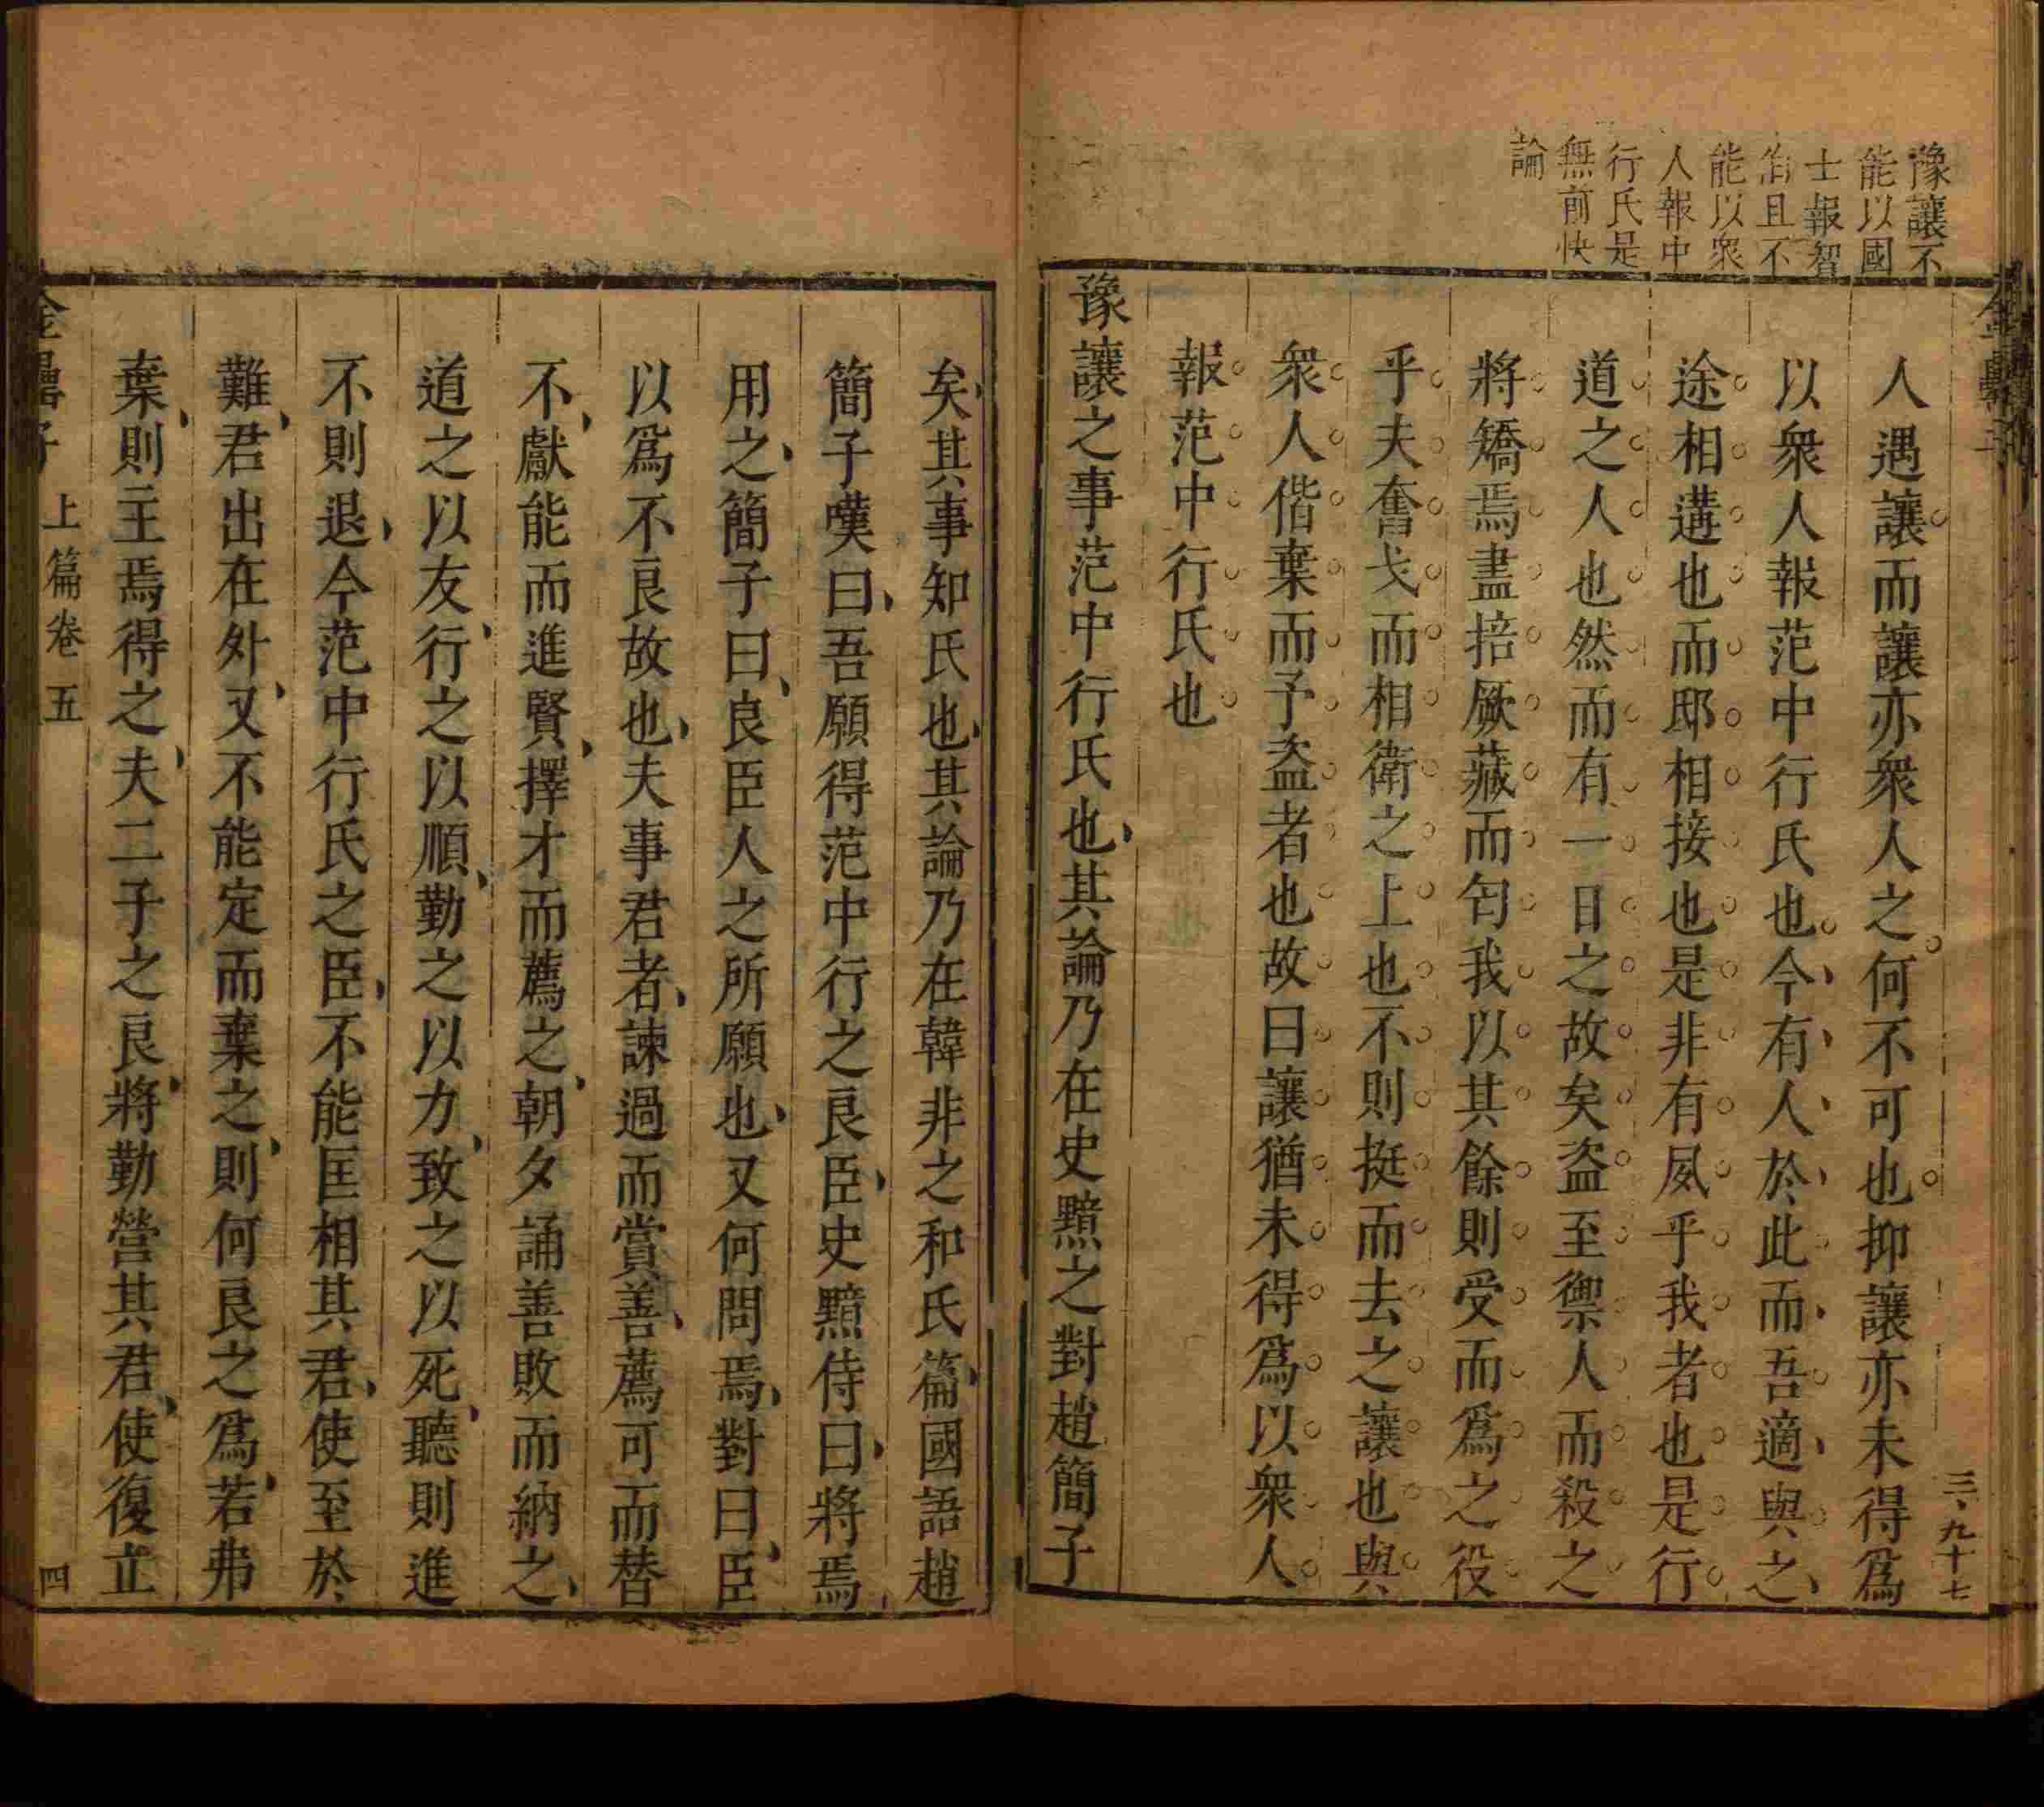 豫讓不
能以國
士報智
伯且不
能以衆
人報中
行氏是
無前快
論
人遇讓而讓亦衆人之何不可也抑讓亦未得爲
以衆人報范中行氏也今有人於此而吾適與之
途相遘也而邸相接也是非有夙乎我者也是行
道之人也然而有一日之故矣盗至禦人而殺之
將矯焉盡掊厥藏而匄我以其餘則受而爲之役
乎夫奮戈而相衛之上也不則挺而去之讓也與
衆人偕棄而予盗者也故曰讓猶未得爲以衆人
報范中行氏也
豫讓之事范中行氏也其論乃在史黯之對趙簡子
三九十七
矣其事知氏也其論乃在韓非之和氏篇國語趙
簡子嘆曰吾願得范中行之良臣史黯侍曰將焉
用之簡子曰良臣人之所願也又何問焉對曰臣
以爲不良故也夫事君者諫過而賞善薦可而替
不獻能而進賢擇才而薦之朝夕誦善敗而納之
道之以友行之以順勤之以力致之以死聽則進
不則退今范中行氏之臣不能匡相其君使至於
難君出在外又不能定而棄之則何良之爲若弗
棄則主焉得之夫二子之良將勤營其君使復立
金罍子 上篇卷五 四